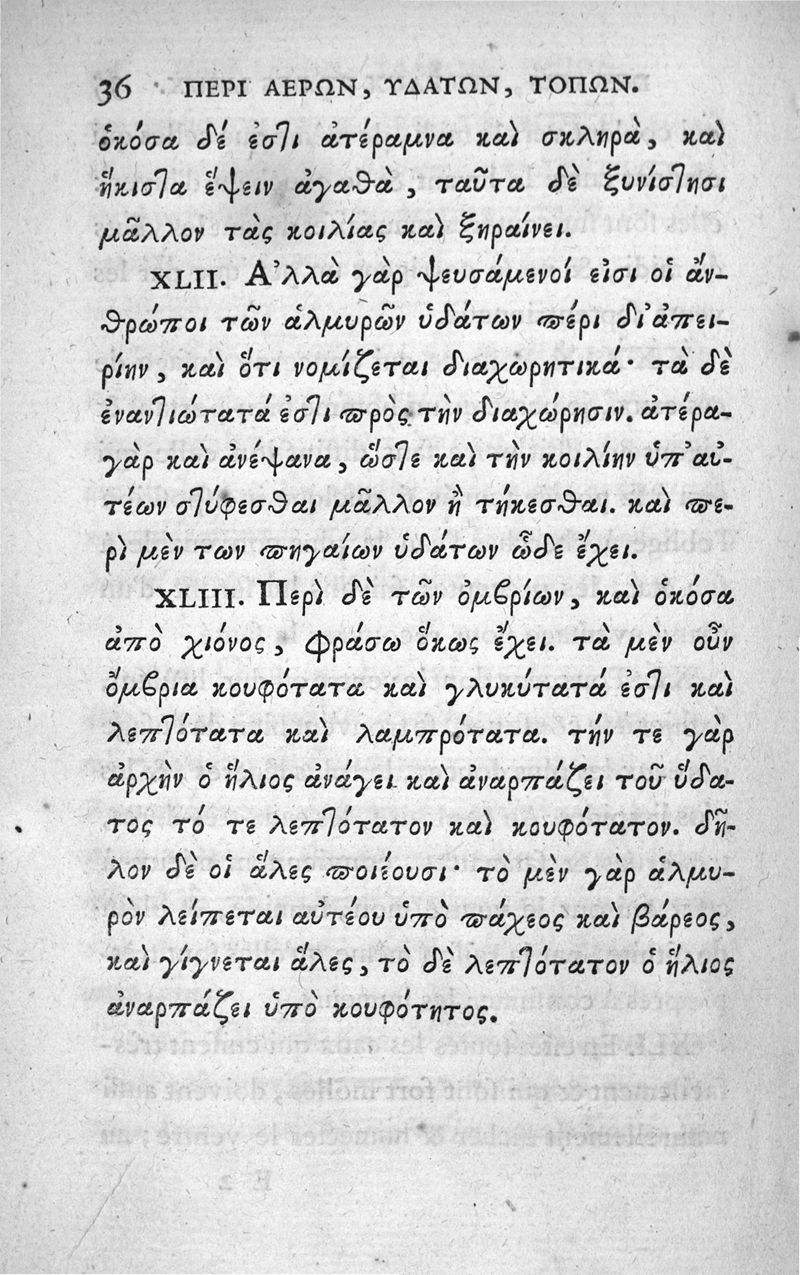 36 ΠΕΡΙ ΑΕΡΩΝ, ΥΔΑΤΩΝ, ΤΟΠΩΝ.
ὁκόσα δέ ἐστι ἀτέραμνα καὶ σκληρὰ, καὶ
ἥκιστα ἕψειν ἀγαθὰ, ταῦτα δὲ ξυνίστησι
μᾶλλον τὰς κοιλίας καὶ ξηραίνει.
XLII. Ἀλλὰ γὰρ ψευσάμενοί εἰσι οἱ ἄν-
θρώποι τῶν ἁλμυρῶν ὑδάτων πέρι δι᾽ἀπει-
ρίην, καὶ ὅτι νομίζεται διαχωρητικά· τὰ δὲ
ἐναντιώτατά ἐστι πρὸς τὴν διαχώρησιν. ἀτέρα-
γὰρ καὶ ἀνέψανα, ὥστε καὶ τὴν κοιλίην ὑπ᾽αὐ-
τέων στύφεσθαι μᾶλλον ἢ τήκεσθαι. καὶ πε-
ρὶ μὲν των πηγαίων ὑδάτων ὧδε ἔχει.
XLIII. Περὶ δὲ τῶν ὀμβρίων, καὶ ὁκόσα
ἀπὸ χιόνος, φράσω ὅκως ἔχει. τὰ μὲν οὖν
ὄμβρια κουφότατα καὶ γλυκύτατά ἐστι καὶ
λεπτότατα καὶ λαμπρότατα. τήν τε γὰρ
ἀρχὴν ὁ ἥλιος ἀνάγει καὶ ἀναρπάζει τοῦ ὕδα-
τος τό τε λεπτότατον καὶ κουφότατον. δῆ-
λον δὲ οἱ ἅλες ποιέουσι· τὸ μὲν γὰρ ἁλμυ-
ρὸν λείπεται αὐτέου ὑπὸ πάχεος καὶ βάρεος,
καὶ γίγνεται ἅλες, τὸ δὲ λεπτότατον ὁ ἥλιος
ἀναρπάζει ὑπὸ κουφότητος.